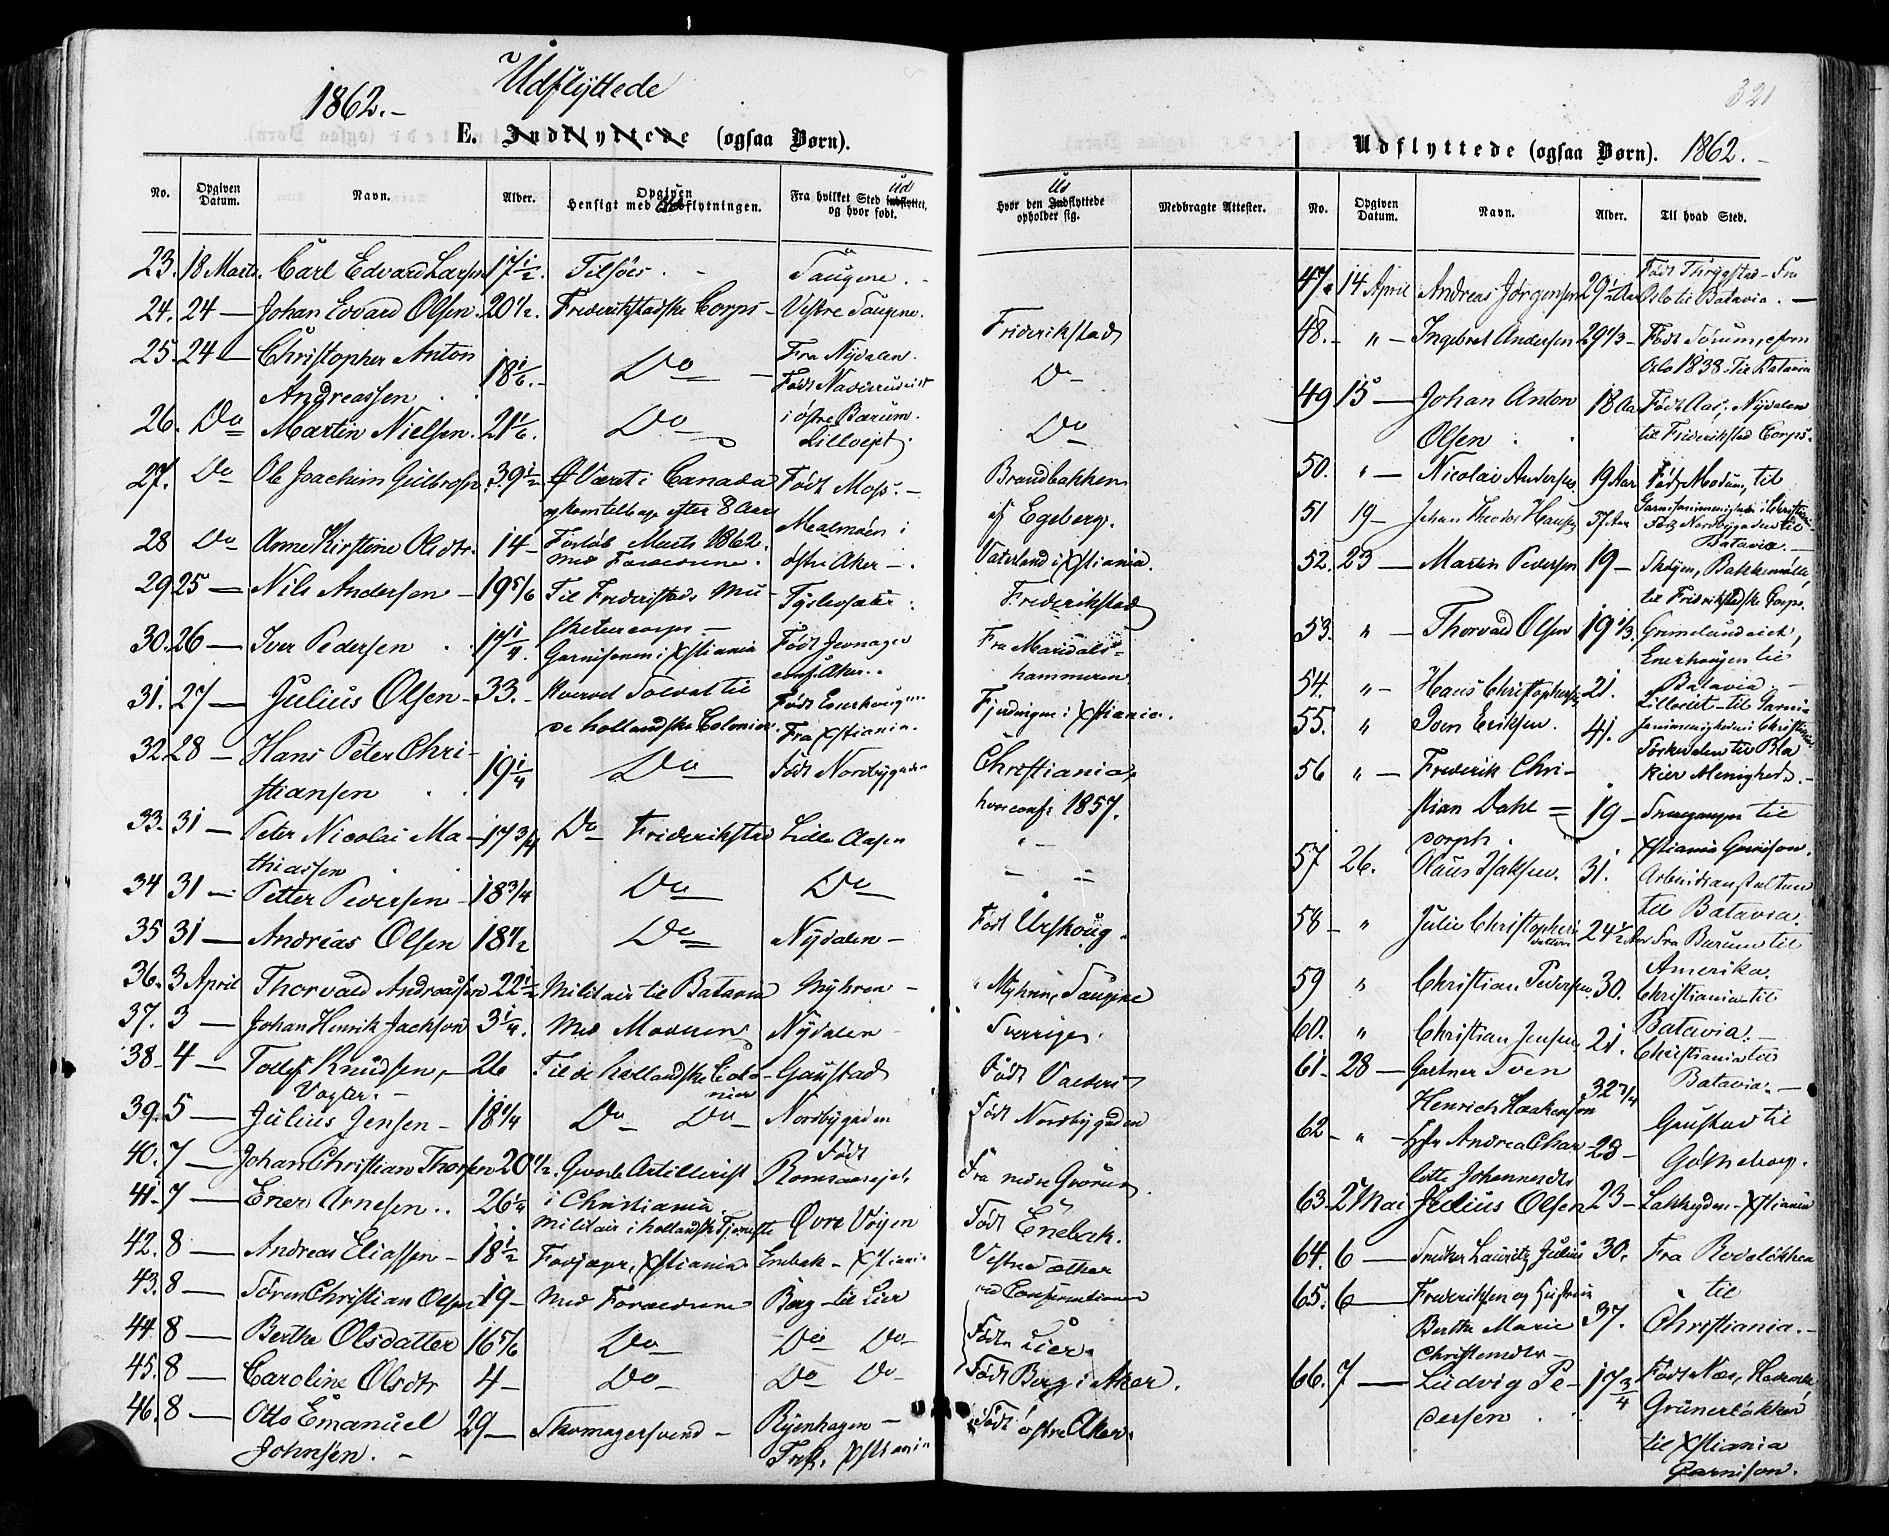 321
1862.-
Udflyttede
E. Indflyttede (ogsaa Børn).
No. Opgiven Datum. Navn. Alder. Opgiven Hensigt med Udflytningen. Fra hvilket Sted Ud indflyttet, og hvor født.
23. 18 Marts. Carl Edvard Larsen 17 1/2. Tilsöes. - Saugene. -
24. 24 — Johan Edvard Olsen. 20 1/2. Frederikstadske Corps - Vestre Saugene.
25. 24 — Christopher Anton
Andreassen 18 1/6. - Do - Fra Nydalen.
Født
26. Do Martin Nielsen. 21 1/6. Do i östre Bærum.
27. Do Ole Joachim Gulbrsen. 39 1/2 Været i Canada Født Moss. -
efter 8 Aars
28 Do Anne Kirstine Olsdtr. 14 - Forløb Marts 1862. Malmöen i
med Forældrene. östre Aker -
29 25 — Nils Andersen - 19 5/6 Til Frederikstads Mu-
sketeercorps -
30. 26 — Iver Pedersen 17 1/4. Garnisonen i Xstiania Født Jevnager
31. 27 — Julius Olsen - 33. - hvervet Soldat til Født Enerhougen
de hollandske Colonier. Fra Xstiania.
32 28 - Hans Peter Chri-
stiansen 19 1/4 Do Født Nordbygaden
33. 31 — Peter Nicolai Ma-
thiassen 17 3/4 Do Friderikstad Lille Aasen
34 31 - Petter Pedersen - 18 3/4 Do Do
35 31 — Andrias Olsen 18 1/2 Do Nydalen -
36. 3 April Thorvald Andreassen 22 1/2 Militair til Batavia Myhren -
37. 3 — Johan Henrik Jackson 3 1/4. Med Moderen Nydalen -
38 - 4 — Tollef Knudsen, - 26 Til de hollandske Colo-
nier Gaustad
39. 5 — Julius Jensen - 18 1/4 Do Do Nordbygaden
40. 7 — Johan Christian Thorsen 20 1/2. Artillerist Født
i Christiania
41. 7 — Ener Arnesen.. 26 1/4 Militair i hollandsk Tjeneste Øvre Vöyen
42. 8 — Andreas Eliassen - 18 1/2 Xstiania Enebak - Xstiania
43. 8 — Sören Christian Olsen 19 - Med Forældrene Berg - til Lier
44. 8 — Berthe Olsdatter 16 5/6 Do Do Do
45. 8 — Caroline Olsdtr 4 - Do Do Do
46. 8 — Otto Emanuel
Johnsen. - 29 — Skomagersvend - Ryenhagen -
Xstiania
Hvor den Ud Indflyttede opholder sig. Medbragte Attester.
Friderikstad
Do
Do
Brandbakken
af Egeberg.
Vaterland i Xstiania.
Frederikstad
Fra Maridals-
hammeren
Fjerdingen i Xstiania.
Christiania,
hvor conf. 1857.
Født Urskoug.
Myhren, Saugene
Sverrige.
Født Valders
Født Nordbygaden
Fra nedre
Født Enebak.
Vestre Sæther
ved Confirmationen
Født Lier.
Født Berg i Aker.
Født östre Aker.
Udflyttede (ogsaa Børn). 1862.-
No. Opgiven Datum. Navn. Alder. Til hvad Sted.
47. 14 April Andreas Jörgensen 29 1/2 Aar Født Thrygstad - Fra
Oslo til Batavia. -
48. - " - Ingebret Andersen 29 1/3 - Født Sörum,
Oslo 1838. Til Batavia
49 15 — Johan Anton
Olsen 18 Aar Født Aas, Nydalen
til Friderikstad Corps.
50. " - Nicolai Andersen. 19 Aar Født Modum, til
Garnisonsmenighed i Christiania
51 19 - Johan Theodor 37 Aar Født Nordbygaden til
Batavia. -
52. 23 — Martin Pedersen 19 - Thöyen, Bakkemölle,
til Fridrikstadske Corps.
53. " - Thorvald Olsen 19 1/3.
Enerhougen til
54. " - Hans Christophersen 21. Batavia. -
55. " Sven Eriksen. 41. Garnisonsmenigheden i Christiania.
56 " — Frederik Chri-
stian Dahl =
dorph. 19 - til
Xstiania Garnison.
57 26. Olaus Isaksen. 31. Arbeidsanstalten
til Batavia.
58 - " Julie Christophers-
datter 24 1/2 Aar Fra Bærum til
Amerika.
59 " Christian Pedersen. 30. Christiania til
Batavia. -
60. " Christian Jensen 21. Christiania til
Batavia. -
61 - 28 — Gartner Sven
Henrich Haakenson 32 3/4 Gaustad til
Gøtheborg.
62 - " - Andrea Char
lotte Johannesdtr 28 -
63 - 2 Mai Julius Olsen 23 - Xstiania
64. 6 — Snedker Lauritz Julius 30. Fra Rodelökken
til
65. 6 — Frederiksen og Hustru
Berthe Marie
Christensdtr - 37. Christiania. -
66. 7 — Ludvig Pe-
dersen 17 3/4 Født Næs, Hedemk.
Grünerlökken
til Xstiania
Garnison.